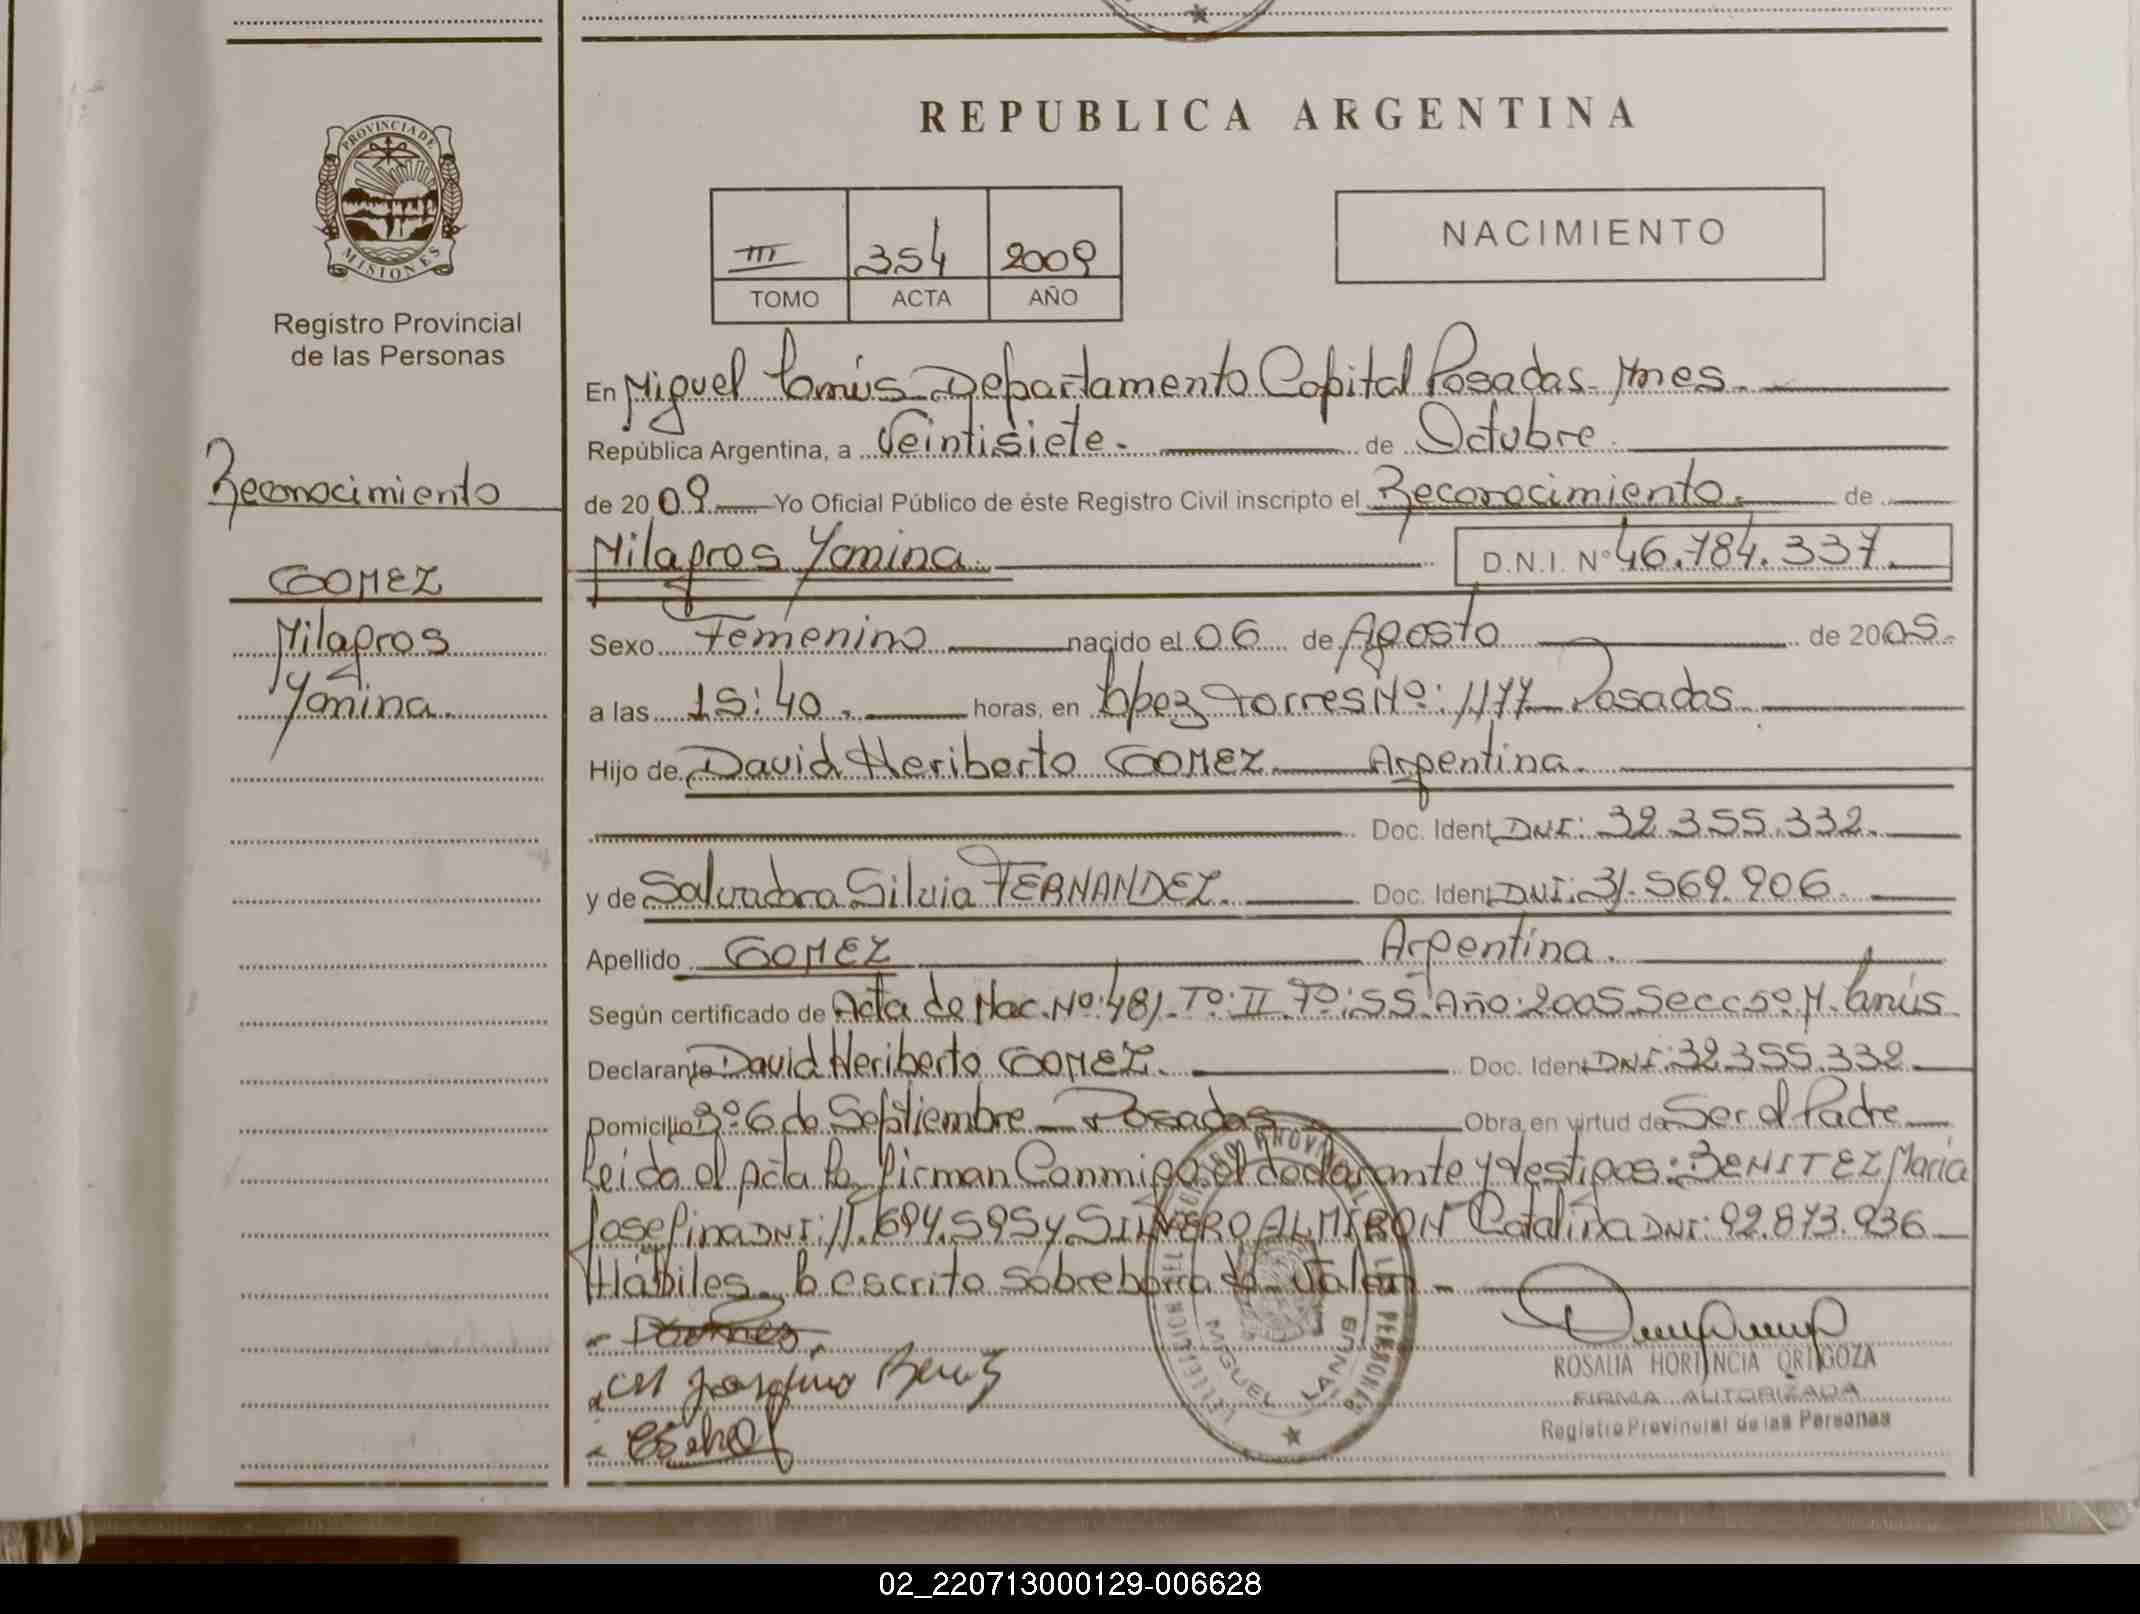 REPUBLICA ARGENTINA
PROVINCIA DE
MISIONES
Registro Provincial
de las Personas
III 354 2009
TOMO ACTA AÑO
NACIMIENTO
Reconocimiento
GOMEZ
Milagros
Yanina.
En Miguel Lanús Departamento Capital Posadas Mnes.
República Argentina, a Veintisiete. de Octubre.
de 2009 Yo Oficial Público de éste Registro Civil inscripto el Reconocimiento. de
Milagros Yanina. D.N.I. Nº 46.784.337.
Sexo Femenino nacido el 06 de Agosto de 2005.
a las 15:40. horas, en López Torres Nº: 1177 Posadas
Hijo de David Heriberto GOMEZ Argentina.
Doc. Ident. DNI: 32.355.332.
y de Salvadora Silvia FERNANDEZ. Doc. Ident. DNI: 31.569.906.
Apellido GOMEZ Argentina.
Según certificado de Acta de Nac. Nº: 481. Tº: II Fº: 55 Año: 2005 Secc 5º M. Lanús
Declarante David Heriberto GOMEZ. Doc. Ident. DNI: 32.355.332
Domicilio Bº 6 de Septiembre - Posadas Obra en virtud de Ser el Padre
Leida el Acta la firman Conmigo el declarante y testigos: BENITEZ Maria
Josefina DNI: 11.694.595 y SILVERO ALMIRON Catalina DNI: 92.873.936
Hábiles. lo escrito sobreborrado. Valen -
REGISTRO PROVINCIAL DE LAS PERSONAS
MIGUEL LANUS
ROSALIA HORTENCIA ORTIGOZA
FIRMA AUTORIZADA
Registro Provincial de las Personas
02_220713000129-006628